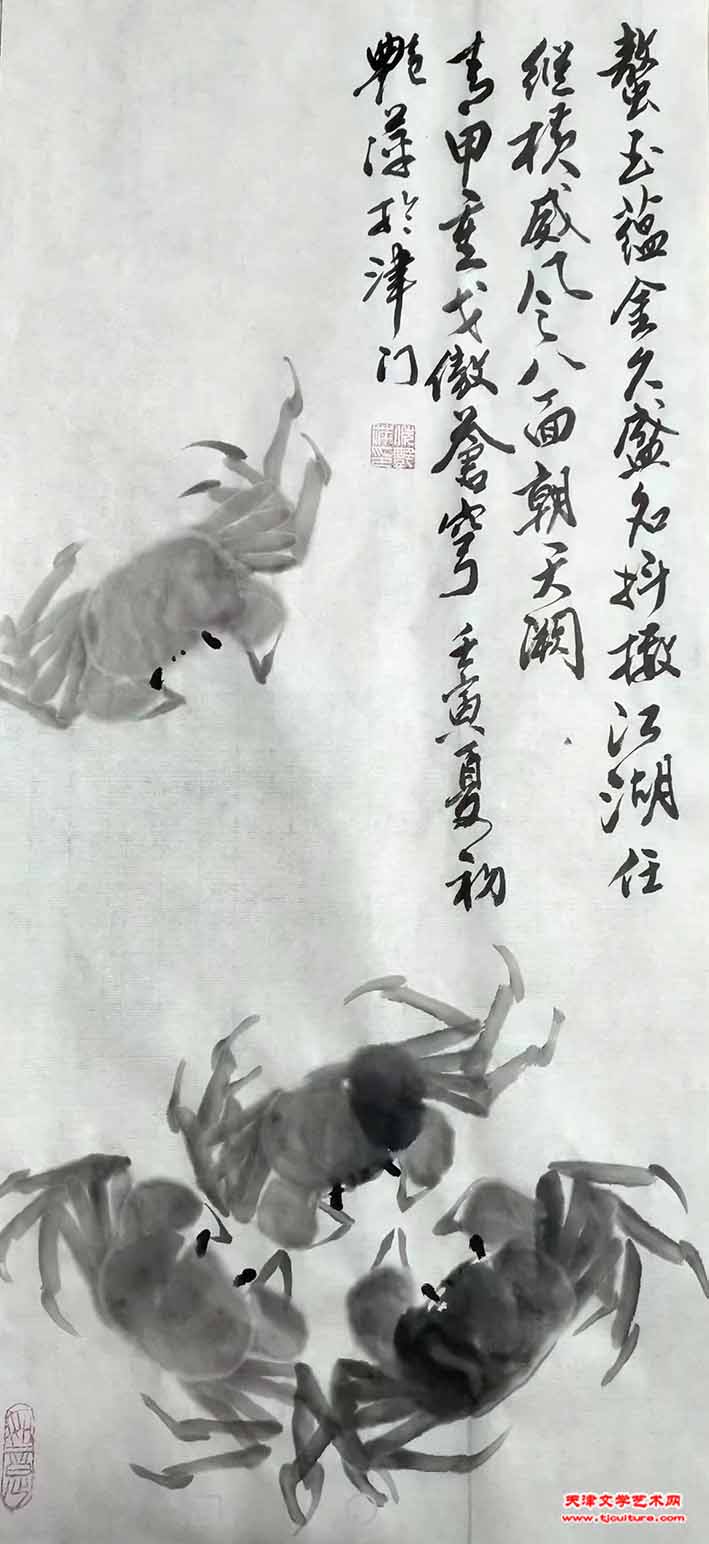 螯玉蕴金久盛名抖擞江湖任
纵横威风令八面朝天阙
青甲重戈傲苍穹 壬寅夏初
艳萍於津门
天津文学艺术网
www.tjculture.com